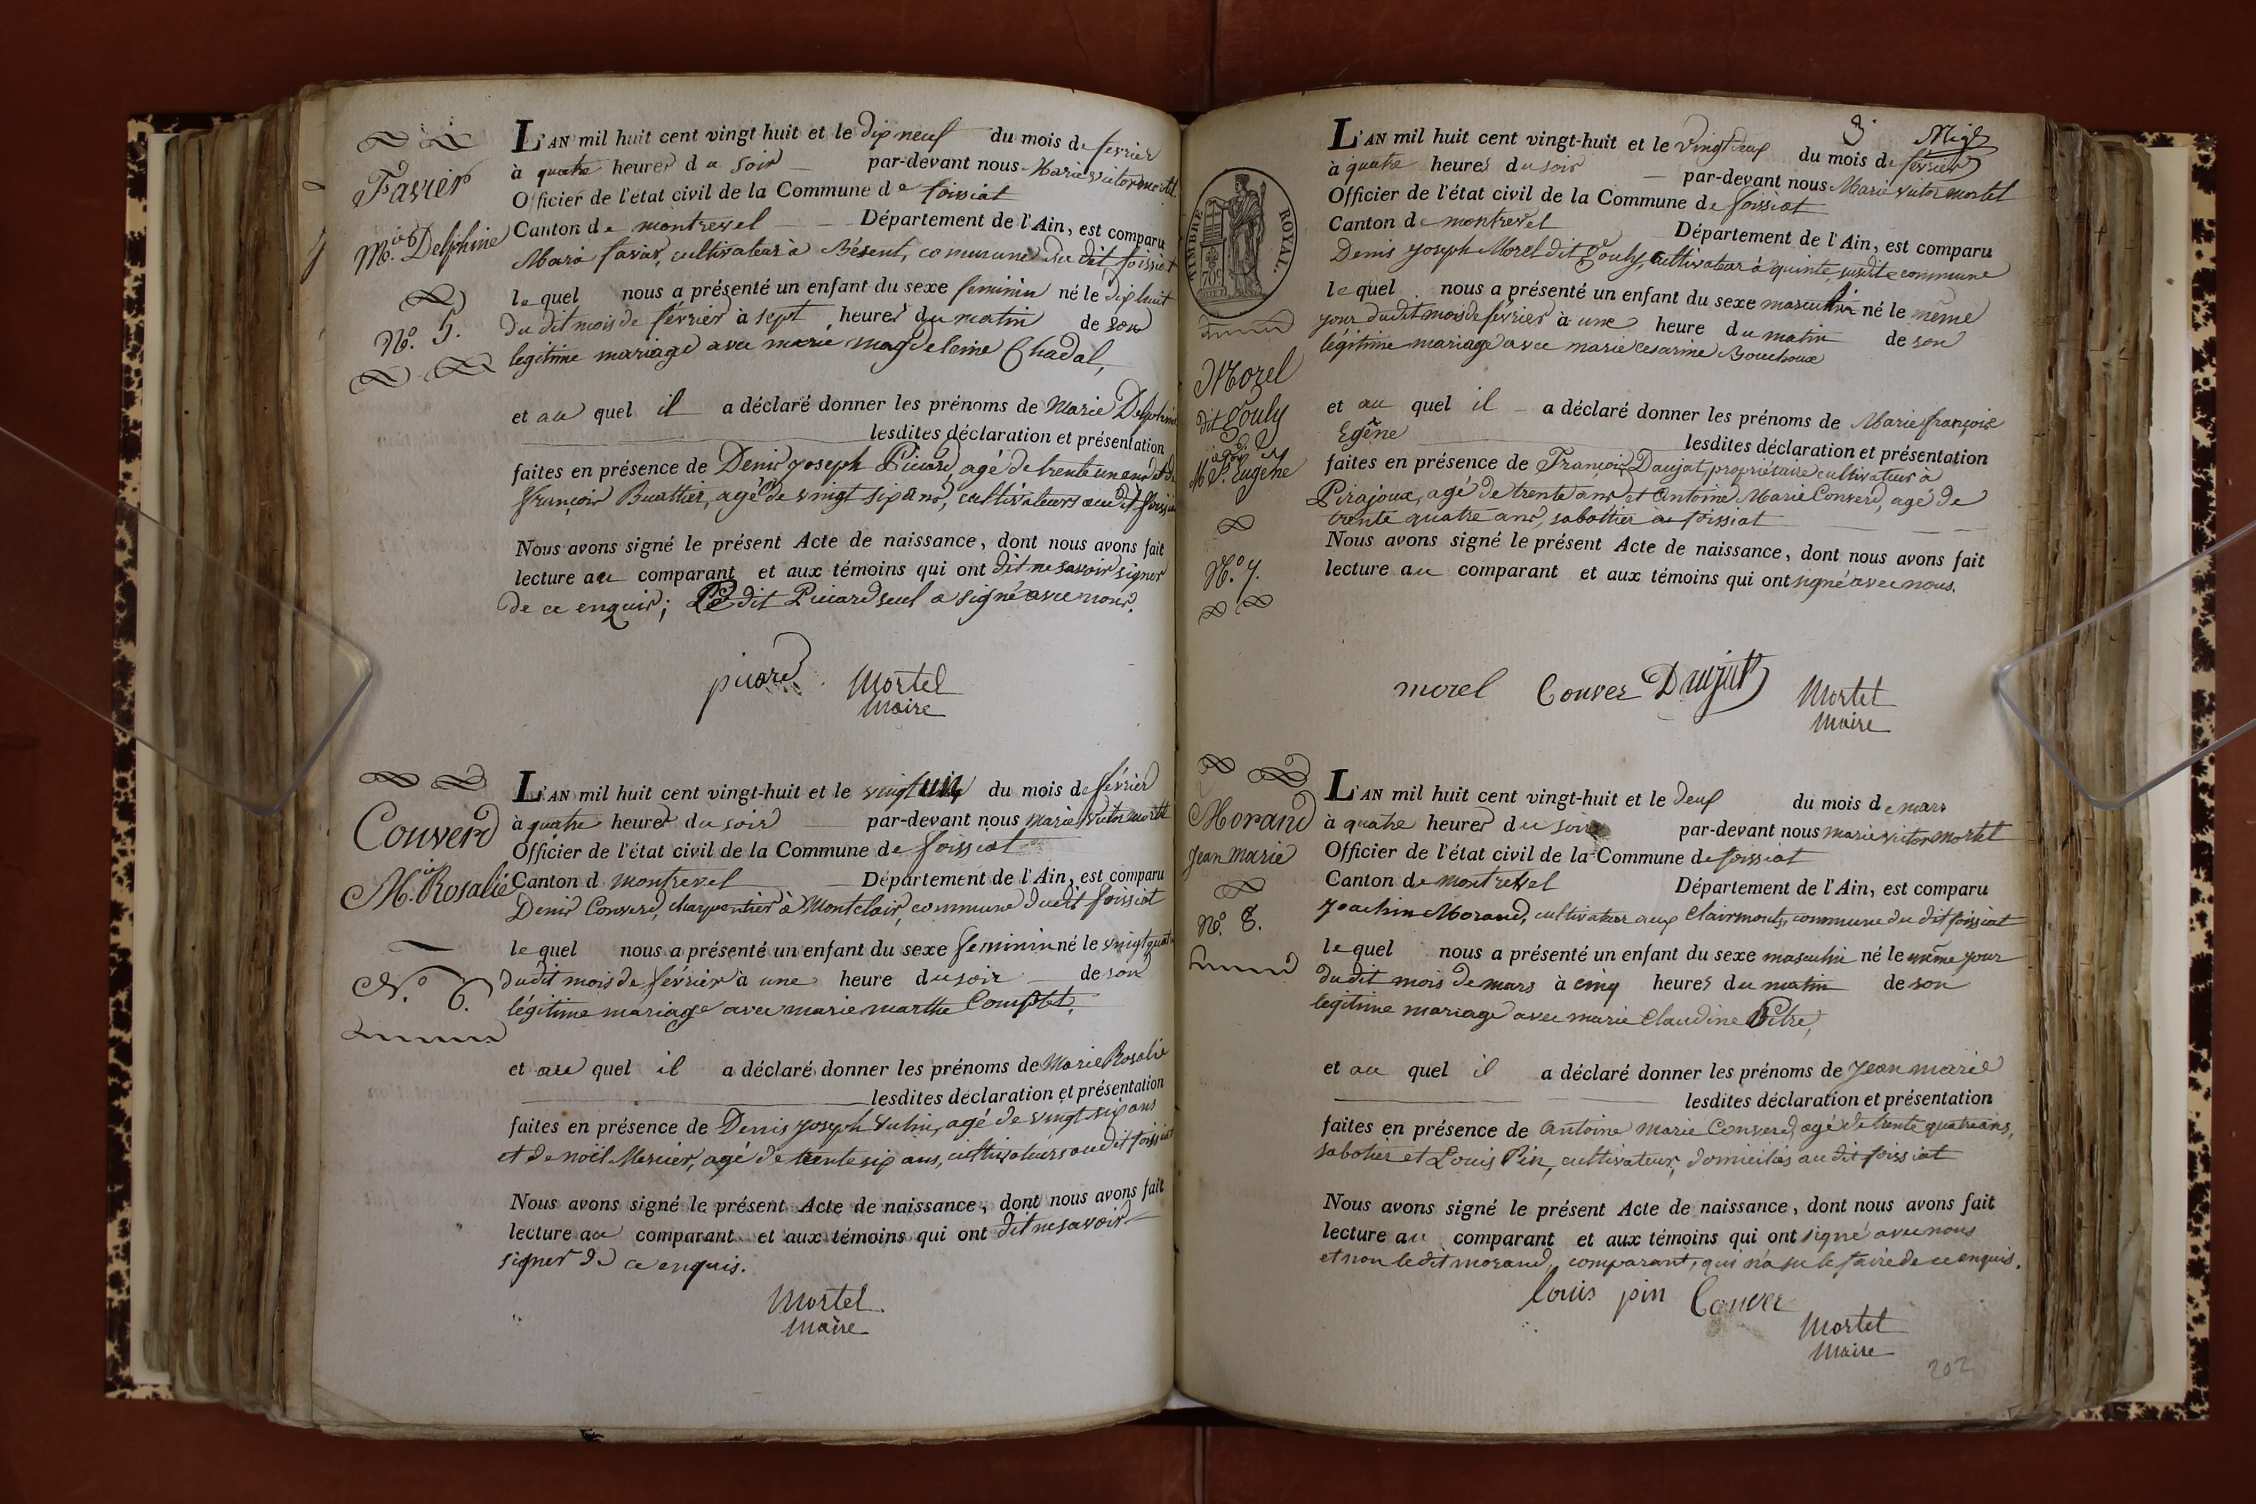 Favier
M.ie Delphine
N.o 5.
L'AN mil huit cent vingt huit et le dix neuf du mois de fevrier
à quatre heures du soir par-devant nous Marie victor mortel
Officier de l'état civil de la Commune de foissiat
Canton de montrevel Département de l'Ain, est comparu
Marie favier, cultivateur à Bésent, commune du dit foissiat
le quel nous a présenté un enfant du sexe feminin né le dix huit
du dit mois de février à sept heures du matin de son
legitime mariage avec marie magdeleine Chadal,
et au quel il a déclaré donner les prénoms de Marie Delphine
lesdites déclaration et présentation
faites en présence de Denis joseph Picard, agé de trente un ans et de
françois Buathier, agé de vingt six ans, cultivateurs au dit foissiat
Nous avons signé le présent Acte de naissance, dont nous avons fait
lecture au comparant et aux témoins qui ont dit ne savoir signer
de ce enquis; Le dit Picard seul a signé avec nous.
picard Mortel
Maire
Converd
M.ie Rosalie
N.o 6.
L'AN mil huit cent vingt-huit et le vingt du mois de février
à quatre heures du soir par-devant nous marie victor mortel
Officier de l'état civil de la Commune de foissiat
Canton d montrevel Département de l'Ain, est comparu
Denis Converd, charpentier à Montclair, commune dudit foissiat
le quel nous a présenté un enfant du sexe feminin né le vingt quatre
dudit mois de février à une heure du soir de son
légitime mariage avec marie marthe Comptet.
et au quel il a déclaré donner les prénoms de Marie Rosalie
lesdites déclaration et présentation
faites en présence de Denis joseph vulin, agé de vingt six ans
et de noël Mercier, agé de trente six ans, cultivateurs au dit foissiat
Nous avons signé le présent Acte de naissance, dont nous avons fait
lecture au comparant et aux témoins qui ont dit ne savoir
signer de ce enquis.
Mortel
Maire
3.
TIMBRE ROYAL.
Morel
dit Gouly
M.ie f.ois Eugène
N.o 7.
L'AN mil huit cent vingt-huit et le vingt deux du mois de février
à quatre heures du soir par-devant nous Marie victor mortel
Officier de l'état civil de la Commune de foissiat
Canton de montrevel Département de l'Ain, est comparu
Denis joseph Morel dit Gouly, cultivateur à quinte, susdite commune
le quel nous a présenté un enfant du sexe masculin né le même
jour dudit mois de février à une heure du matin de son
légitime mariage avec marie cesarine Bouchoux
et au quel il a déclaré donner les prénoms de Marie françois
Egêne lesdites déclaration et présentation
faites en présence de François Daujat, propriétaire cultivateur à
Pirajoux, agé de trente ans et Antoine Marie Converd, agé de
trente quatre ans, sabottier à foissiat
Nous avons signé le présent Acte de naissance, dont nous avons fait
lecture au comparant et aux témoins qui ont signé avec nous.
morel Conver Daujat Mortel
Maire
Morand
Jean Marie
N.o 8.
L'AN mil huit cent vingt-huit et le deux du mois de mars
à quatre heures du soir par-devant nous marie victor mortel
Officier de l'état civil de la Commune de foissiat
Canton de montrevel Département de l'Ain, est comparu
Joachim Morand, cultivateur aux Clairmonts, commune du dit foissiat
le quel nous a présenté un enfant du sexe masculin né le même jour
dudit mois de mars à cinq heures du matin de son
legitime mariage avec marie Claudine Pitre,
et au quel il a déclaré donner les prénoms de Jean marie
lesdites déclaration et présentation
faites en présence de Antoine Marie Converd, agé de trente quatre ans,
sabotier et Louis Pin, cultivateur, domiciliés au dit foissiat
Nous avons signé le présent Acte de naissance, dont nous avons fait
lecture au comparant et aux témoins qui ont signé avec nous
et non le dit morand, comparant, qui n'a su le faire de ce enquis.
louis pin Conver
Mortel
Maire
202